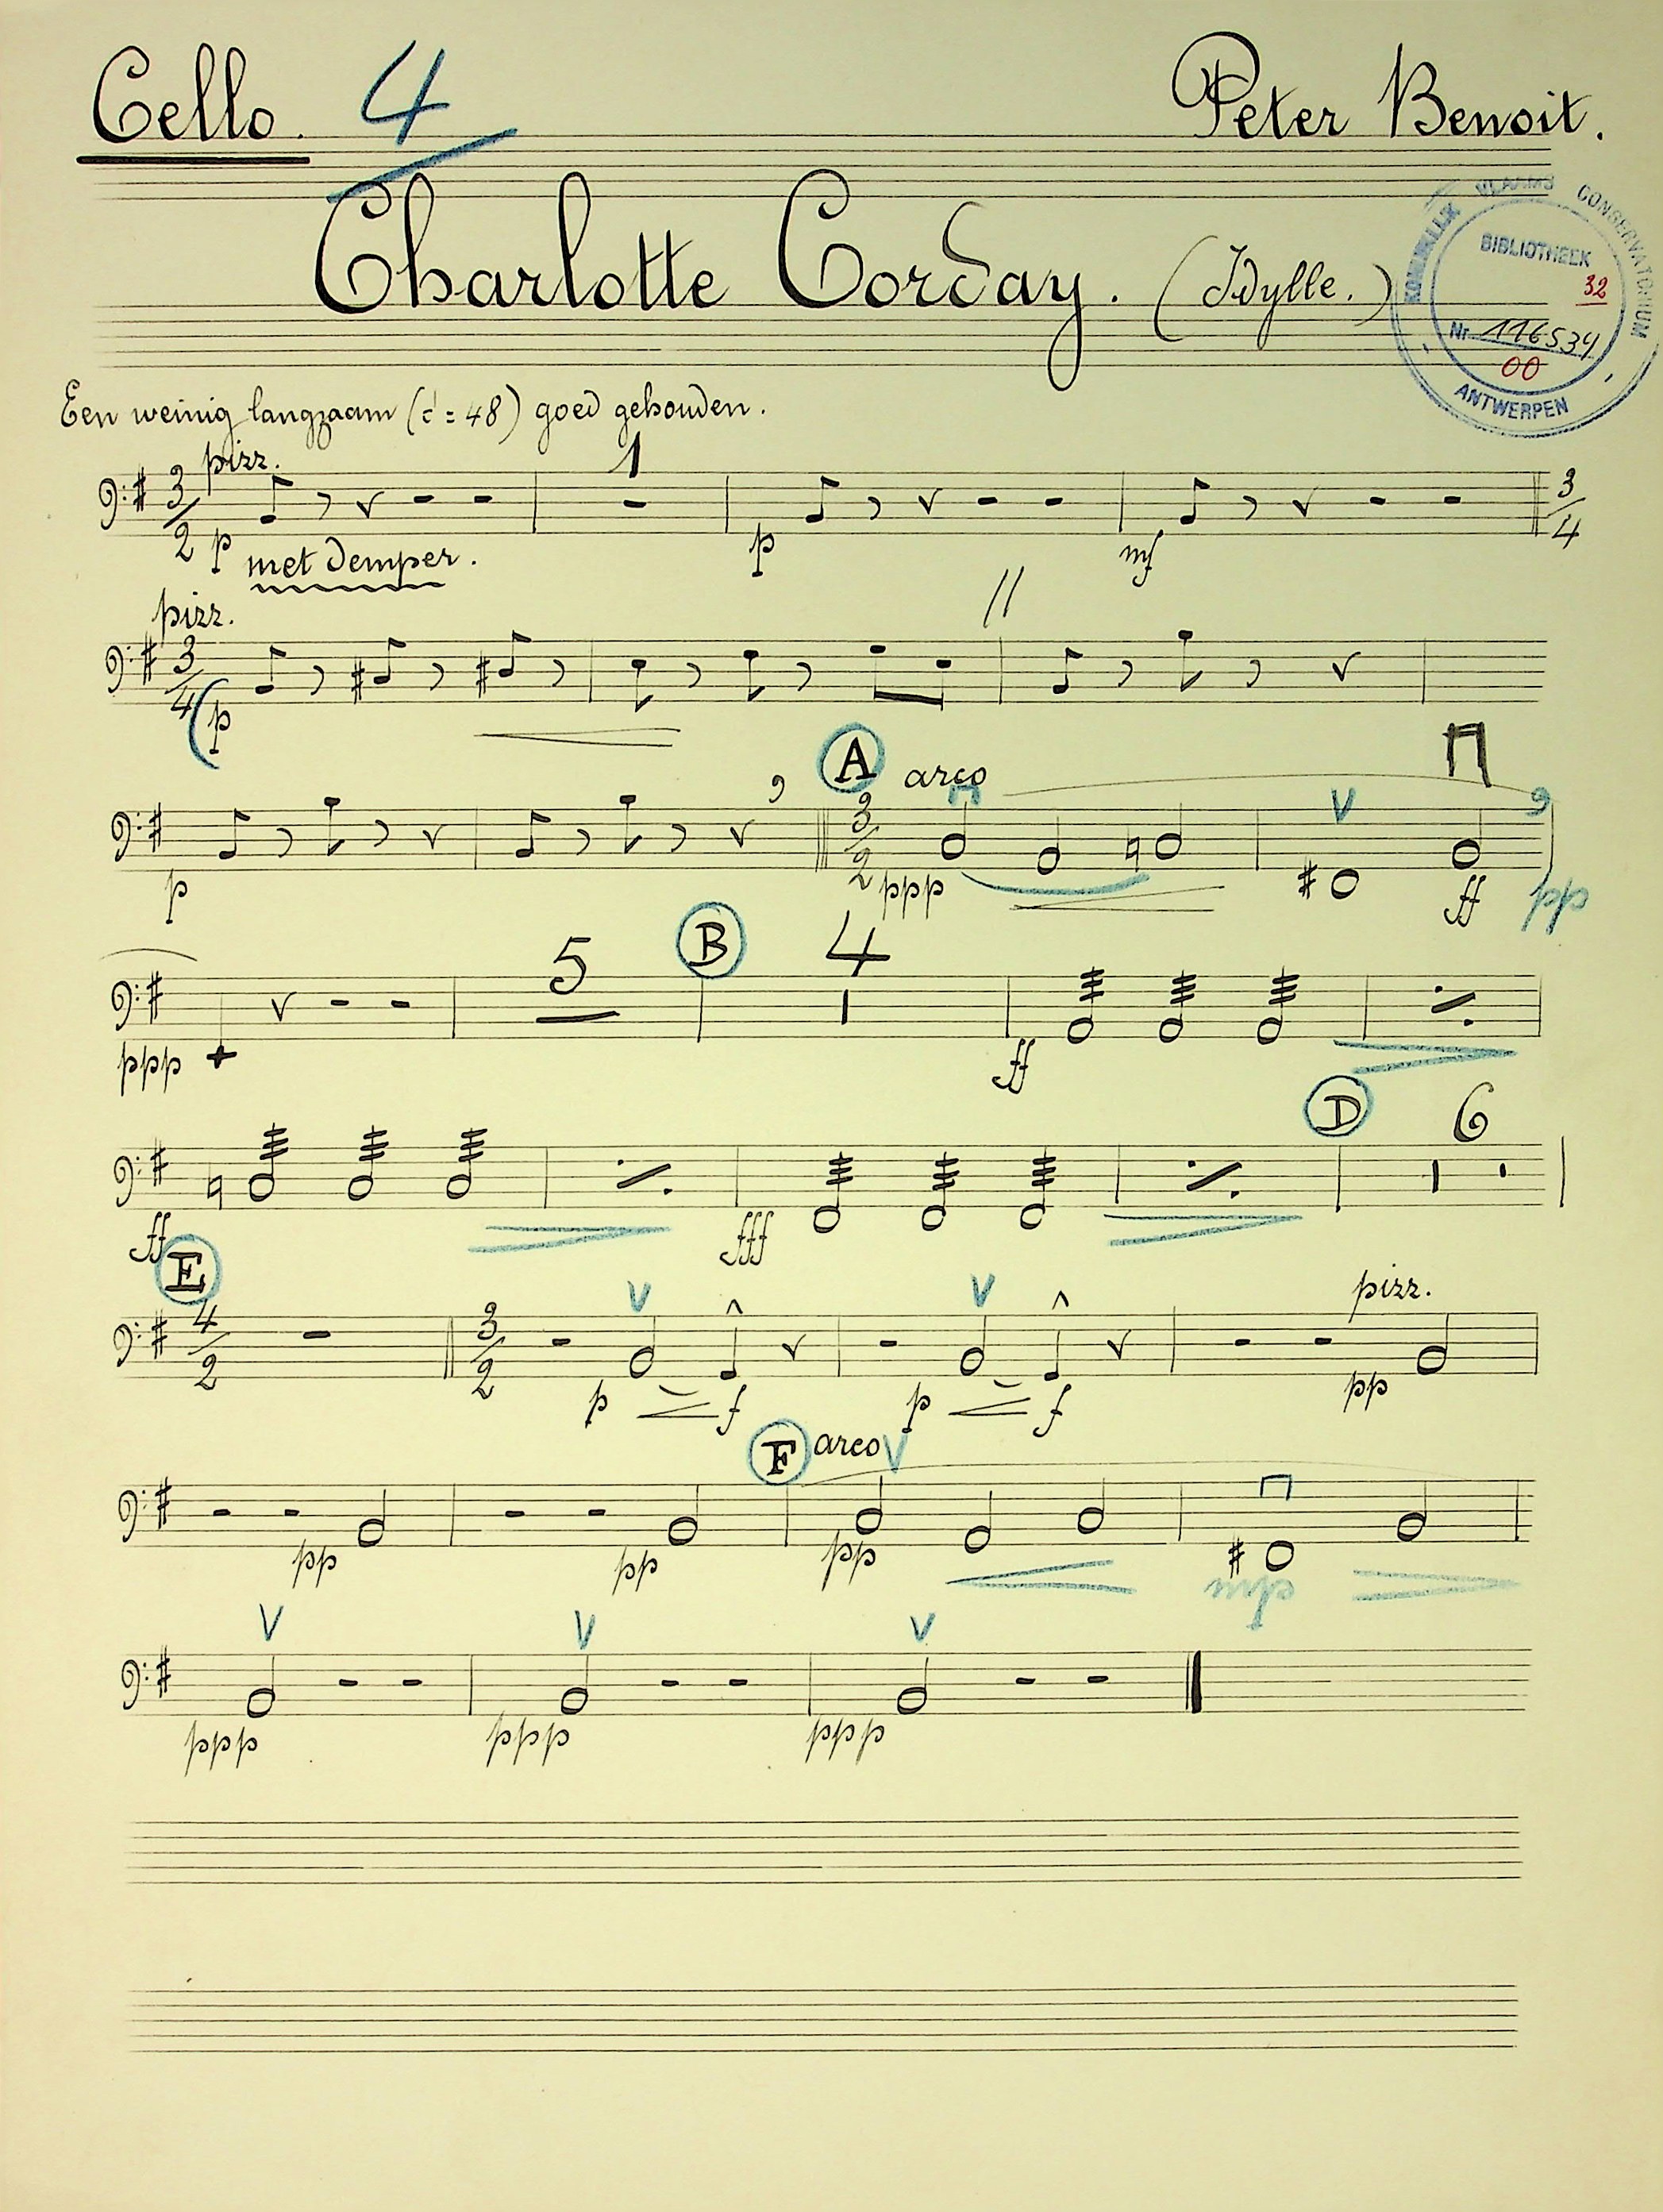 Cello. 4
Peter Benoit.
Charlotte Corday. (Idylle.)
KONINKLIJK VLAAMS CONSERVATORIUM
BIBLIOTHEEK
32
Nr. 116534
00
ANTWERPEN
Een weinig langzaam (𝅗𝅥 = 48) goed gehouden.
pizz. 1
3/2 3/4
p met demper. p mf
pizz. //
3/4
p
A arco
3/2
p ppp ff pp
5 B 4
ppp ff
D 6
ff fff
E
4/2 3/2 pizz.
p f p f pp
F arco
pp pp pp mp
ppp ppp ppp